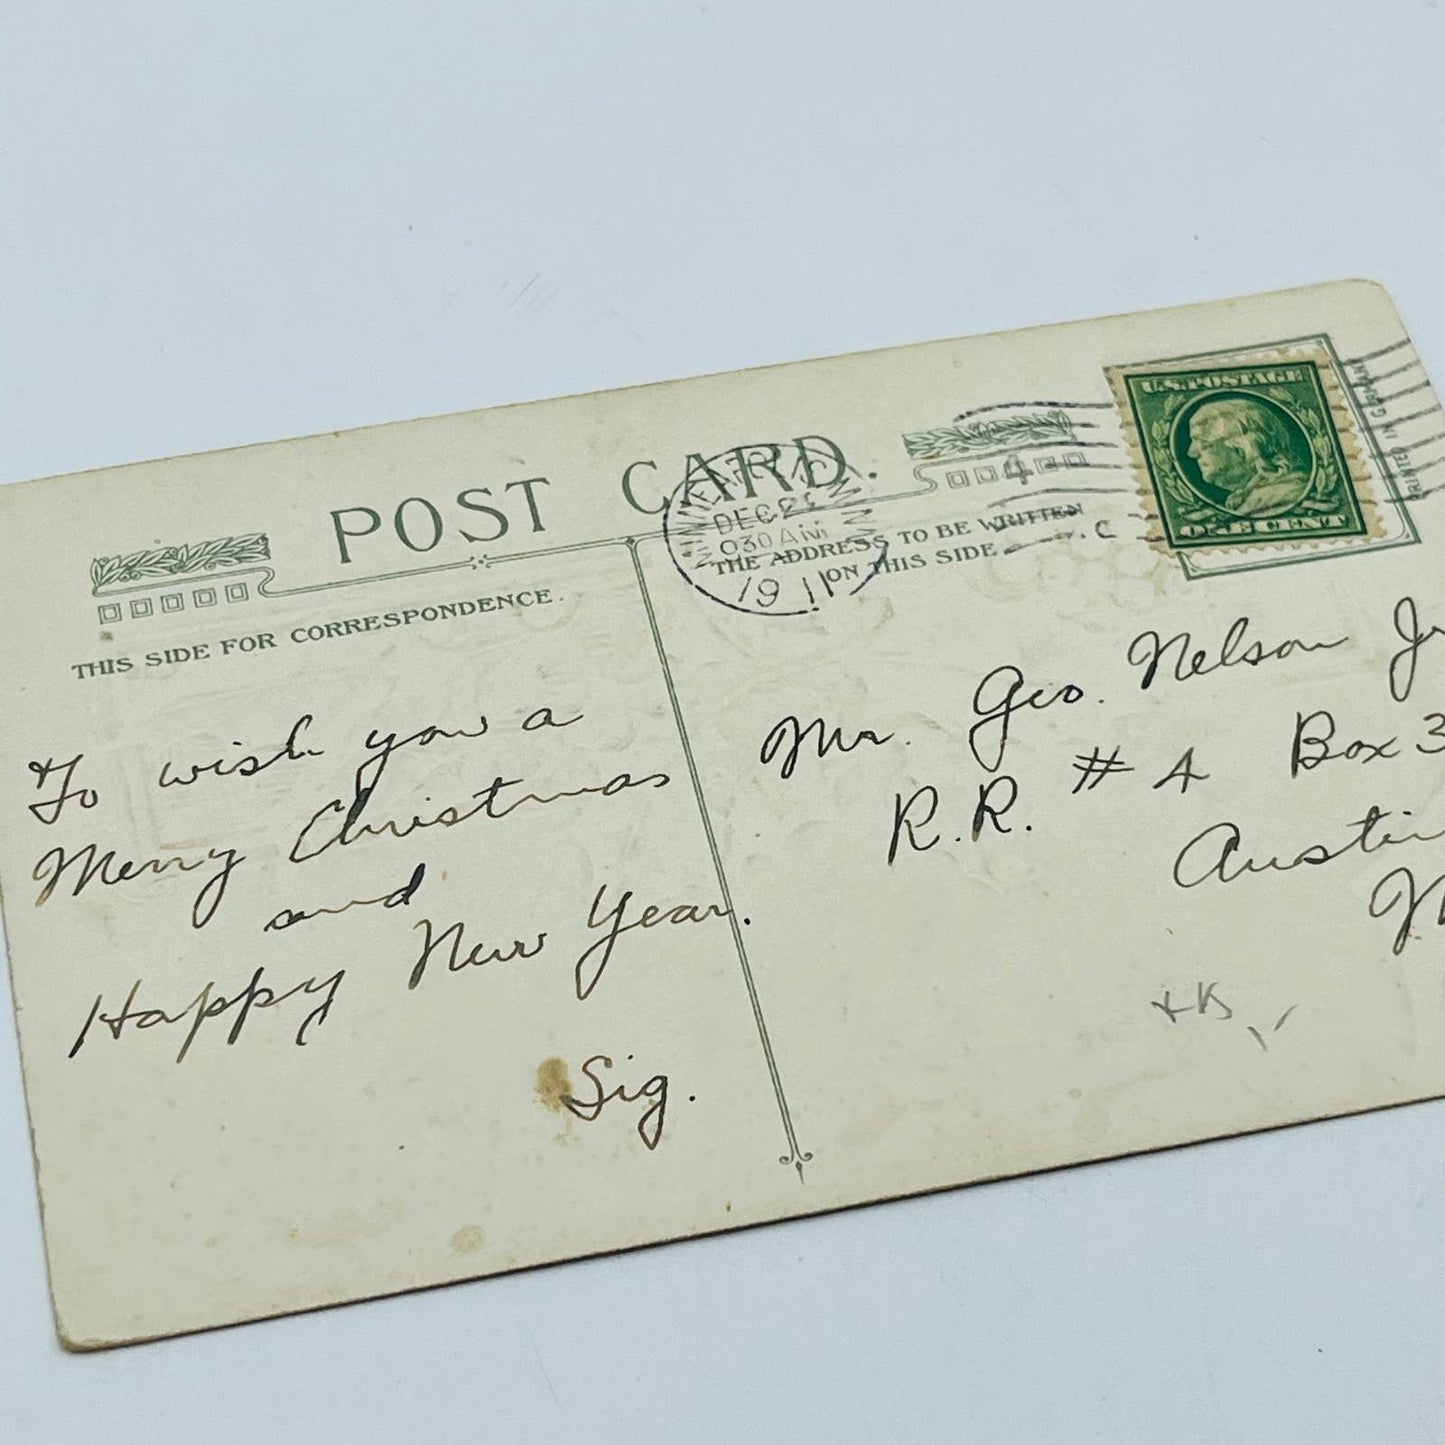 POST CARD.
THIS SIDE FOR CORRESPONDENCE.
THE ADDRESS TO BE WRITTEN
ON THIS SIDE
U.S. POSTAGE
ONE CENT
PRINTED IN GERMANY
DEC
30 AM
1911
4
To wish you a
Merry Christmas
and
Happy New Year.
Sig.
Mr. Geo. Nelson Jr
R.R. # 4 Box 3
Austin